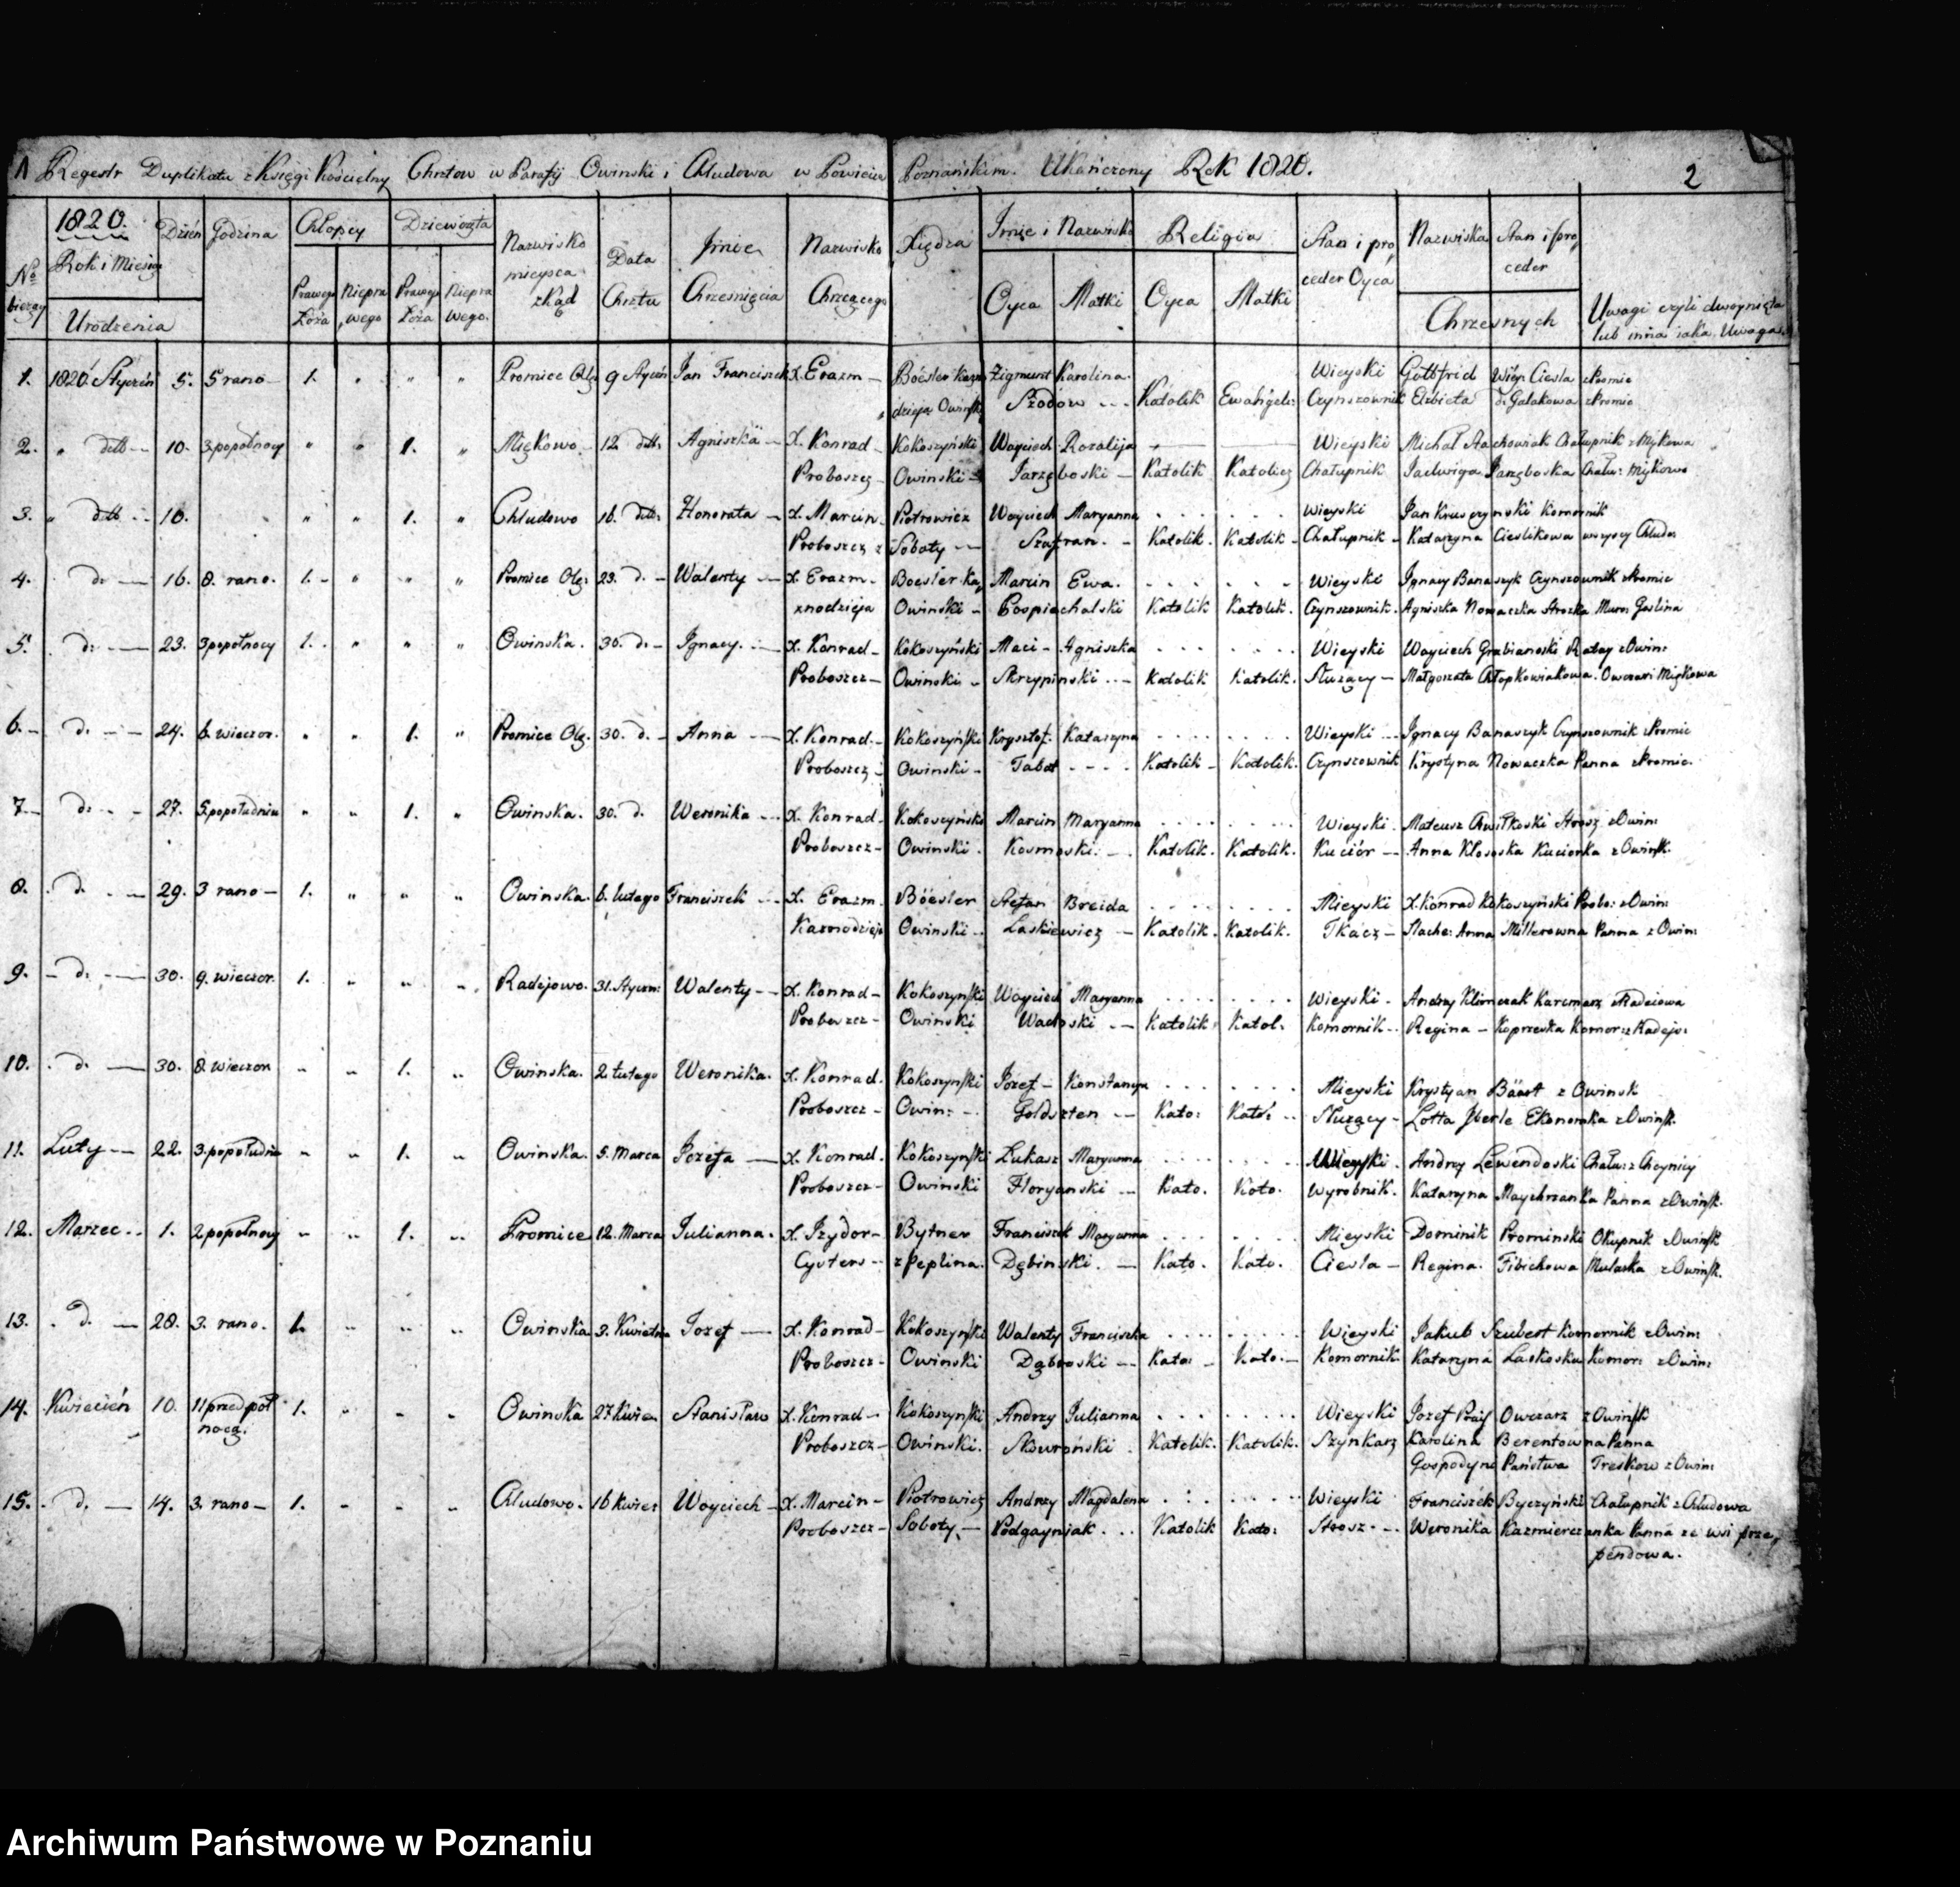 Regestr Duplikatu z Księgi Kościelny Chrztow w Parafij Owinski i Chludowa w Powiecie Poznańskim. Ukończony Rok 1820.
2
No bieżący
1820. Rok i Miesiąc Dzień Godzina
Urodzenia
Chłopcy
Prawego Łoża Niepra„wego
Dziewczęta
Prawego Łoża Niepra wego.
Nazwisko mieysca zkąd
Data Chrztu
Jmie Chrzesnięcia
Nazwisko Xiędza
Chrzącego
Jmię i Nazwisko
Oyca Matki
Religia
Oyca Matki
Stan i pro„ceder Oyca
Nazwiska Stan i pro„ceder
Chrzesnych
Uwagi czyli dwoynięta lub inna iaka Uwaga.
1. 1820 Styczeń 5. 5 rano 1. „ „ „ Promice Olę 9 Styczń Jan Franciszek X. Erazm Böesler Kazno Zigmunt Karolina. Wieyski Gottfrid Więy. Ciesla z Promic
dzieja Owińsk Szodow Katolik Ewangiel: Czynszownik Elzbieta Galakowa z Promic
2. „ detto 10. 3 popołnocy „ „ 1. „ Miękowo. 12. detto Agniszka X. Konrad Kokoszyński Woyciech Rozalija Wieyski Michał Stachowiak Chałupnik z Mękowa
Proboszcz Owinski Jarzęboski Katolik Katolicz Chałupnik Jadwiga Jarzęboska Chału: Miękowo
3. „ detto 10. „ „ 1. „ Chludowo 16. detto Honorata X. Marcin Piotrowicz Woyciech Maryanna wieyski Jan Kruszynski Komornik
Proboszcz z Soboty Szafran. Katolik. Katolik Chałupnik Katarzyna Cieslikowa wszyscy Chludo:
4. d: 16. 8. rano. 1. „ „ „ Promice Olę: 23. d. Walenty X. Erazm Boesler Ka„ Marcin Ewa. Wieyski Jgnacy Banaszyk Czynszownik z Promic
znodzieja Owinski Pospiechalski Katolik Katolik. Czynszownik. Agniszka Nowaczka Murow Goslina
5. d: 23. 3 popołnocy 1. „ „ „ Owinska. 30. d: Jgnacy. X. Konrad Kokoszyński Maci Agniszka Wieyski Woyciech Grabianoski Rataj z Owin:
Proboszcz Owinski Skrzypinski Katolik Katolik. Służący Małgorzata Chłopkowiakowa. Owczarz Miękowa
6. d. 24. 6. wieczor. „ „ 1. „ Promice Olę. 30. d. Anna X. Konrad. Kokoszyński Krysztof. Katarzyna Wieyski Jgnacy Banaszyk Czynszownik z Promic
Proboszcz Owinski Tabat Katolik Katolik. Czynszownik Krystyna Nowaczka Panna z Promic.
7. d: 27. 5. popołudniu „ „ 1. „ Owinska. 30. d. Weronika X. Konrad. Kokoszyński Marcin Maryanna Wieyski. Mateusz Strosz z Owin:
Proboszcz Owinski. Kosmoski. Katolik. Katolik. Kuciór Anna Kłososka Kuciorka z Owińsk.
8. d. 29. 3 rano 1. „ „ „ Owinska. 6. lutego Franciszek X. Erazm. Böesler Stefan Breida Mieyski X. Konrad Kokoszyński Probo: z Owin:
Kaznodzieja Owinski Laskiewicz Katolik. Katolik. Tkacz Szlache: Anna Millerowna Panna z Owin:
9. d: 30. 9. wieczor. 1. „ „ „ Radojowo. 31. Stycznia: Walenty X. Konrad Kokoszyński Woyciech Maryanna Wieyski. Andrzy Klimczak Karcmarz z Radoiowa
Proboszcz Owinski Wacłoski Katolik. Katol. Komornik. Regina Koprzeska Komor: z Radojo:
10. d. 30. 8. wieczor. „ „ 1. „ Owinska. 2. Lutego Weronika. X. Konrad. Kokoszyński Jozef Konstancya Mieyski Krystyan Bäast z Owinsk
Proboszcz Owin: Goldszten Kato: Kato: Służący Lotta Jberle Ekonomka z Owińsk.
11. Luty 22. 3. popołudniu „ „ 1. „ Owinska. 5. Marca Jozefa X. Konrad. Kokoszyński Łukasz Maryanna Wieyski. Andrzy Lewendoski Chału: z Choynicy
Proboszcz Owinski Floryanski Kato. Kato. Wyrobnik. Katarzyna Maychrzanka Panna z Owińsk.
12. Marzec. 1. 2 popołnocy „ „ 1. „ Promice 12. Marca Julianna. X. Jzydor Bytner Franciszek Maryanna Mieyski Dominik Prominski Okupnik z Owińsk
Cysters z Peplina. Dębinski. Kato. Kato. Ciesla Regina. Fibichowa Mularka z Owińsk.
13. d. 28. 3. rano. 1. „ „ „ Owinska 3. Kwietnia Jozef X. Konrad Kokoszyński Walenty Franciszka Wieyski Jakub Szubert Komornik z Owin:
Proboszcz Owinski Dąbroski Kato: Kato: Komornik Katarzyna Laskoska Komor: z Owin:
14. Kwiecień 10. 11 przed poł nocą. 1. „ „ „ Owinska 27 Kwie: Stanisław X. Konrad Kokoszyński Andrzy Julianna Wieyski Jozef Owczarz z Owińsk
Proboszcz Owinski. Skoroński. Katolik. Katolik. Szynkarz Karolina Berentowna Panna
Gospodyni Państwa Treskow z Owin:
15. d. 14. 3. rano 1. „ „ „ Chludowo. 16 Kwiet Woyciech X. Marcin Piotrowicz Andrzy Magdalena Wieyski Franciszek Byczyński Chałupnik z Chludowa
Proboszcz Soboty Podgayniak. Katolik Kato: Strosz. Weronika Kazmierczanka Panna ze wsi prze„
pendowa.
Archiwum Państwowe w Poznaniu